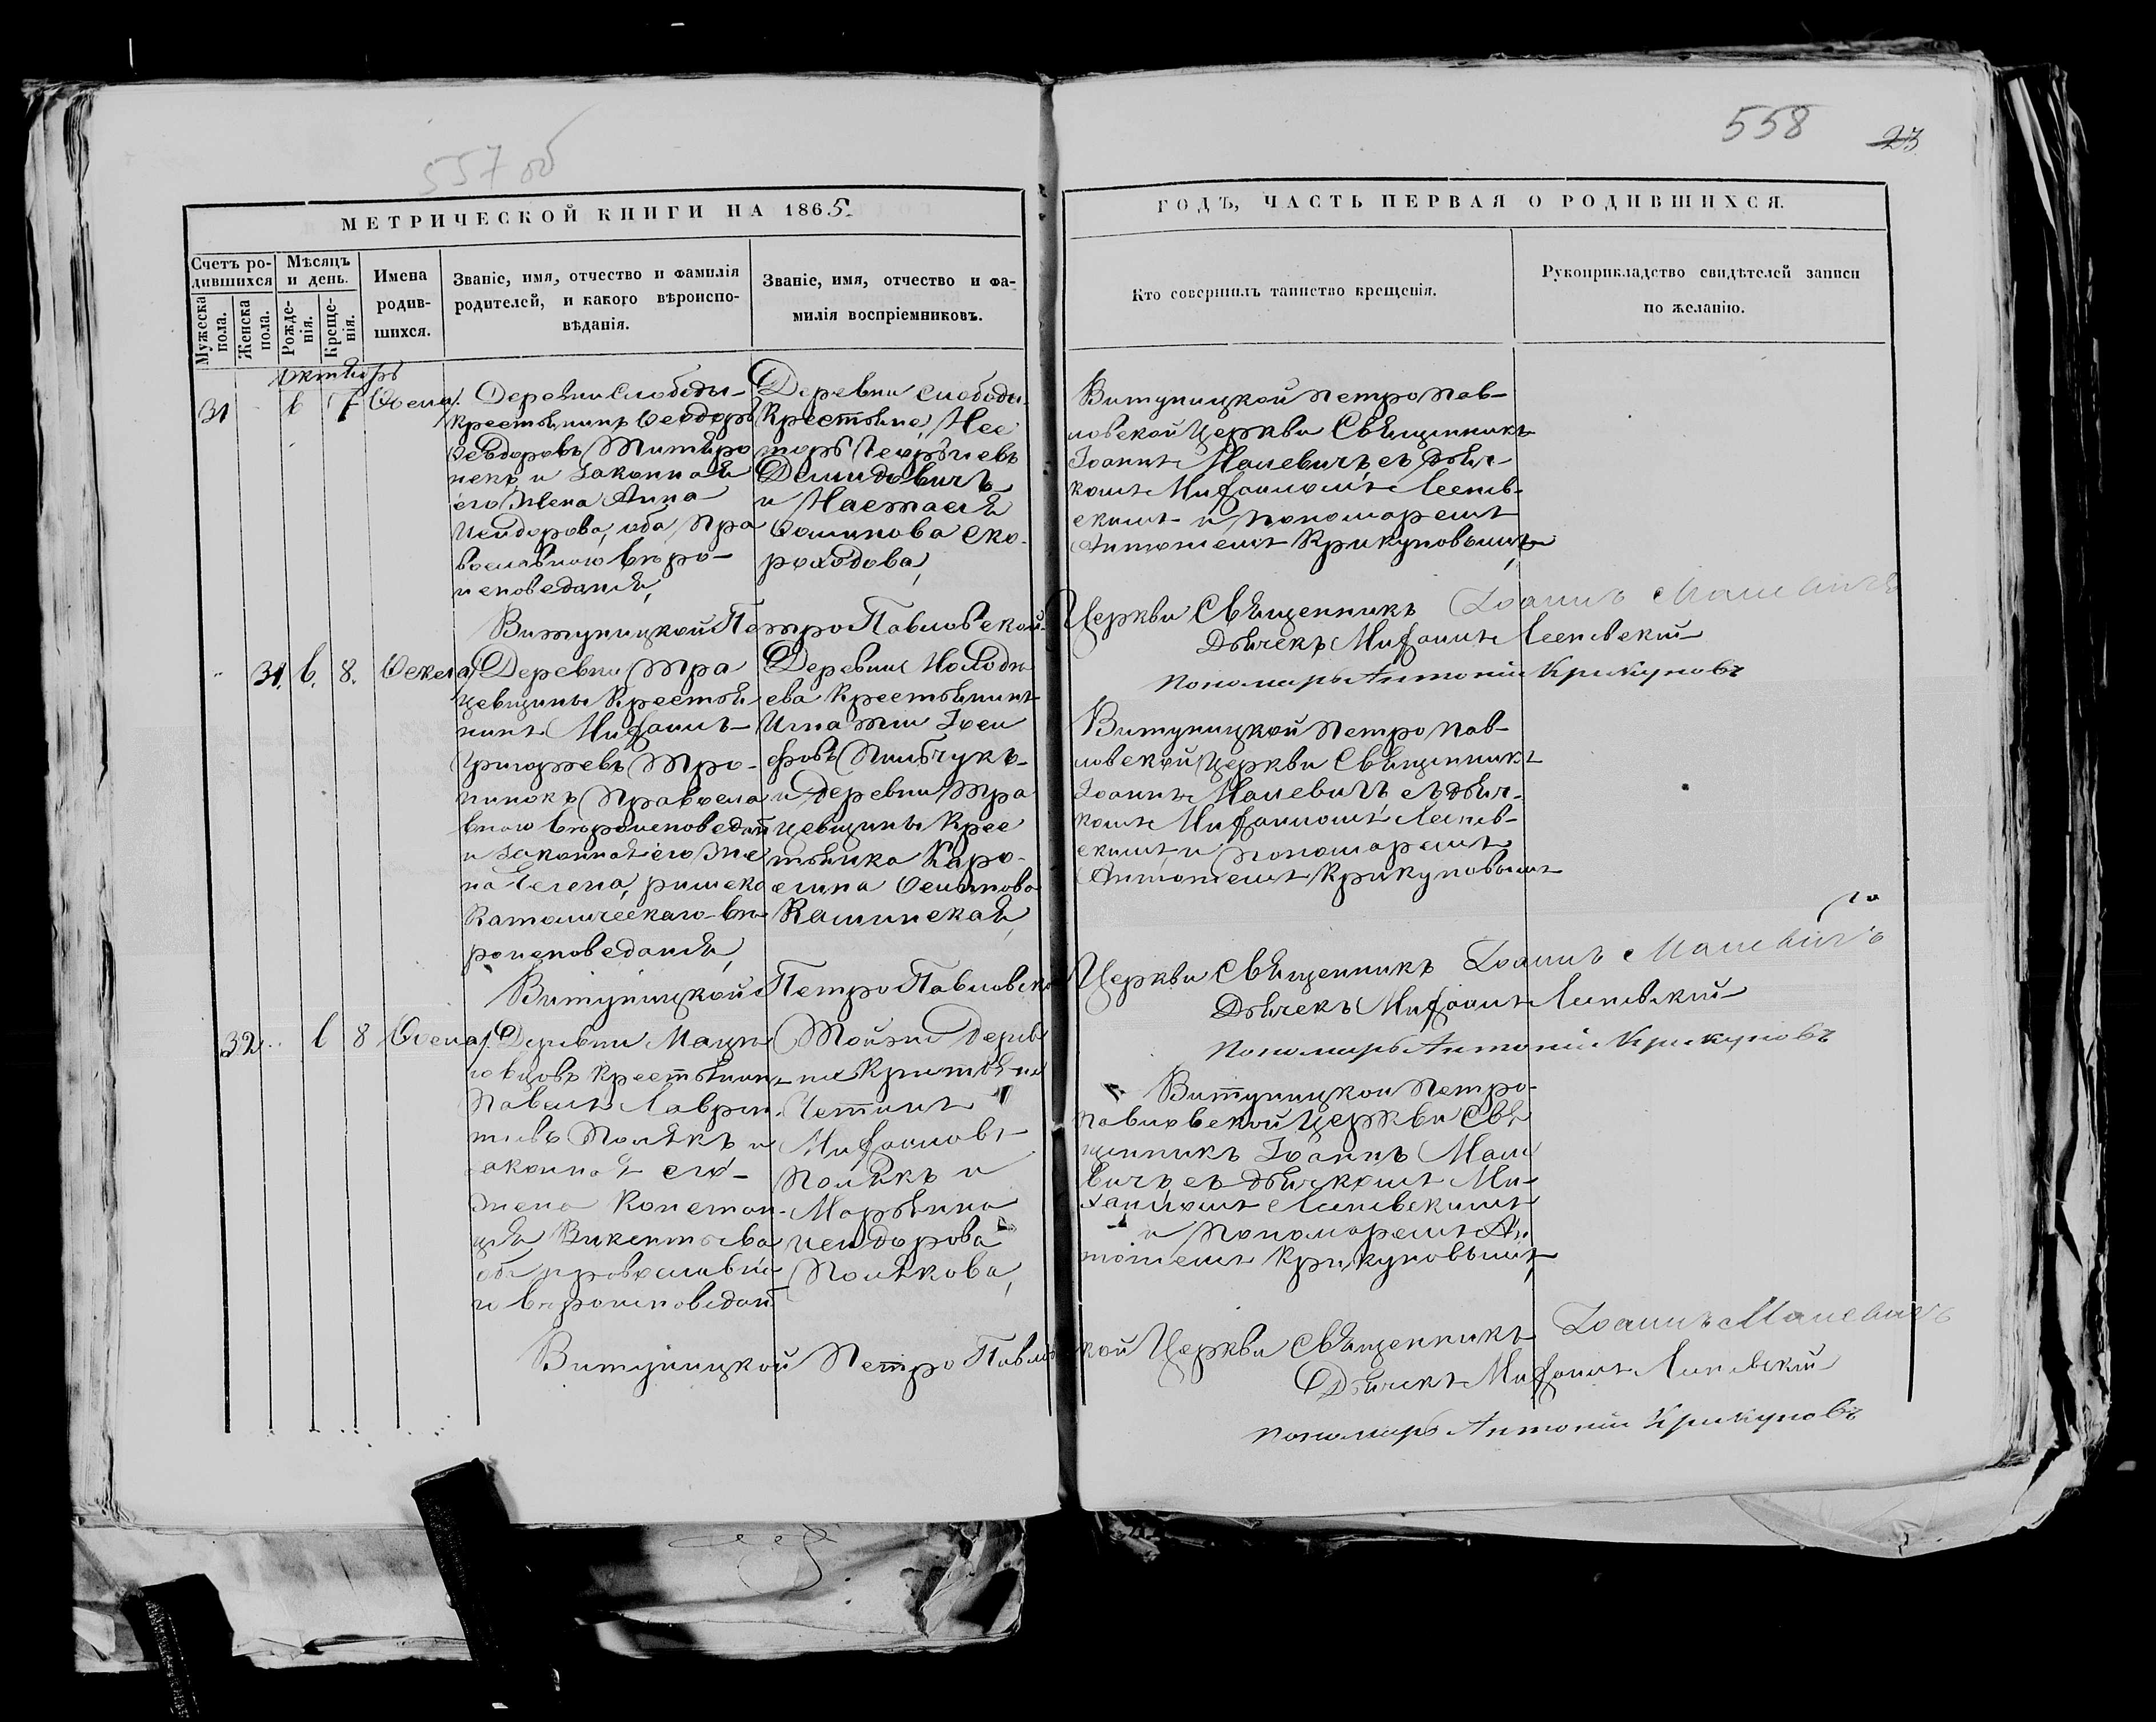 557 об
558
23
МЕТРИЧЕСКОЙ КНИГИ НА 1865.
ГОДЪ, ЧАСТЬ ПЕРВАЯ О РОДИВШИХСЯ.
Счетъ ро-
дившихся
Мужеска
пола.
Женска
пола.
Мѣсяцъ
и день.
Рожде-
нія.
Креще-
нія.
Имена
родив-
шихся.
Званіе, имя, отчество и фамилія
родителей, и какого вѣроиспо-
вѣданія.
Званіе, имя, отчество и фа-
милія воспріемниковъ.
Кто совершилъ таинство крещенія.
Рукоприкладство свидѣтелей записи
по желанію.
Октябрь
31
6
7
Деревни Слободы
крестьянинъ Ѳеодоръ
Ѳеодоровъ
и законная
его жена Анна
Исидорова, оба Пра
вославнаго вѣро-
исповеданія,
Деревни Слободы
Крестьяне, Нес
торъ Георгіевъ
Демидовичъ
и Настасія
Ско-
роходова,
Витуницкой Петро Пав-
ловской Церкви Священникъ
Іоаннъ Малевичъ съ Дьяч-
комъ Михаиломъ
и Пономаремъ
Антоніемъ Крикуновымъ,
Витуницкой Петро Павловской
Церкви Священникъ Іоаннъ Малевичъ
Дьячекъ Михаилъ
Пономарь Антоній Крикуновъ
31.
6.
8.
Ѳекла,
Деревни Тра
цевщины Крестья
нинъ Михаилъ
Григорьевъ Тро-
Правосла
внаго вѣроисповедан
и законная его Же
на Елена, римско
Католическаго вѣ
роисповеданія,
Деревни
Крестьянинъ
Игнатій Іоси
фовъ
и Деревни Тра
цевщины Крес
тьянка Каро-
лина
Витуницкой Петро Пав-
ловской Церкви Священникъ
Іоаннъ Малевичъ съ Дьяч-
комъ Михаиломъ
и Пономаремъ
Антоніемъ Крикуновымъ
Витуницкой Петро Павловско
Церкви Священникъ Іоаннъ Малевичъ
Дьячекъ Михаилъ
Пономарь Антоній Крикуновъ
32
6
8
Деревни
Крестьянинъ
Павелъ Лаврен
тіевъ Полякъ и
законная его
жена Констан-
ція Викентьева
оба православна
го вѣроисповедан
Тойже Дерев
ни Крестьяне
Михаиловъ
Полякъ и
Марьянна
Исидорова
Полякова,
Витуницкой Петро-
Павловской Церкви Свя
щенникъ Іоаннъ Мале
вичъ съ дьячкомъ Ми-
хаиломъ
и Пономаремъ Ан
тоніемъ Крикуновымъ,
Витуницкой Петро Павловской Церкви Священникъ Іоаннъ Малевичъ
Дьячекъ Михаилъ
Пономарь Антоній Крикуновъ